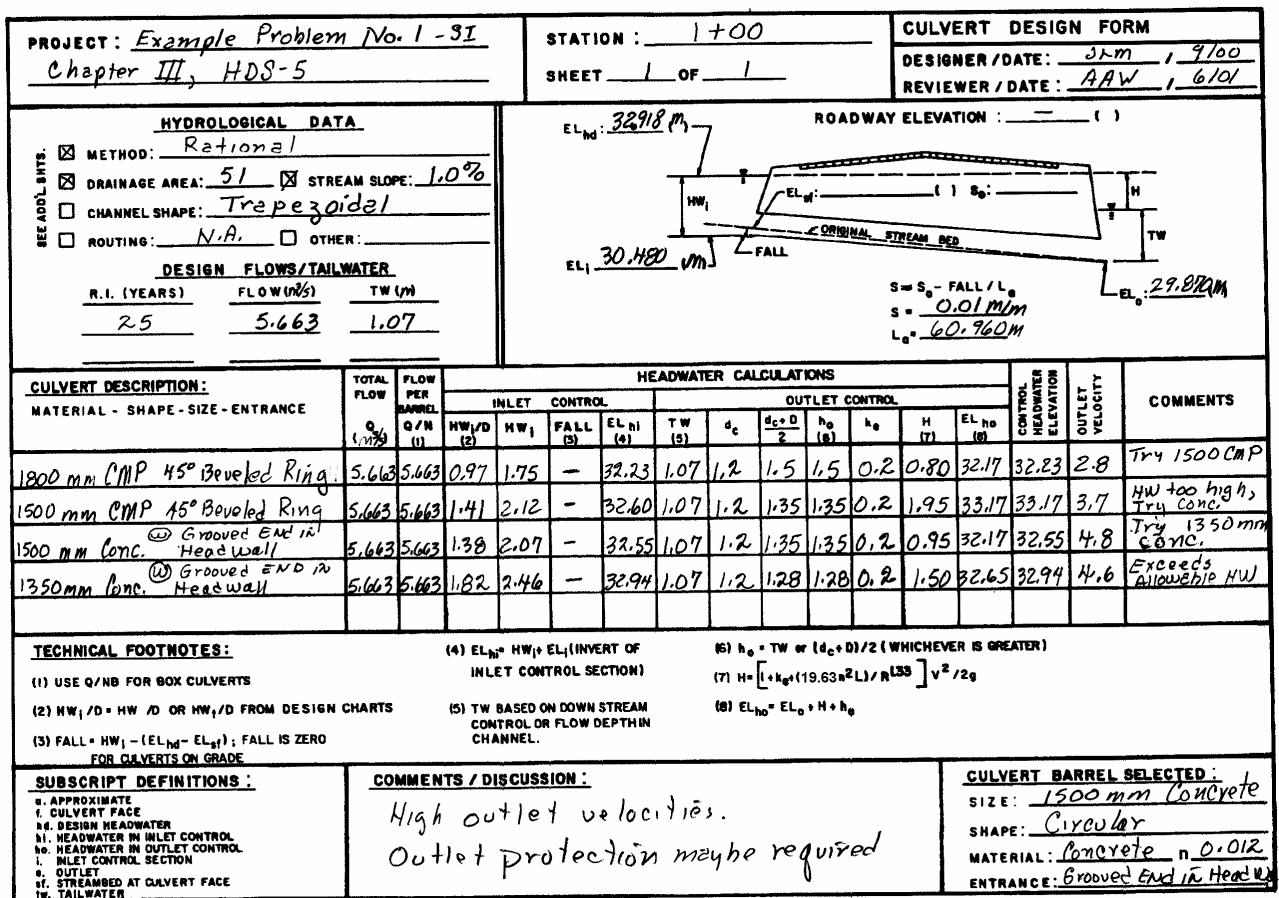 PROJECT: Example Problem No. 1 - SI
Chapter III, HDS-5
STATION: 1+00
SHEET 1 OF 1
CULVERT DESIGN FORM
DESIGNER/DATE: JLM / 9/00
REVIEWER/DATE: AAW / 6/01
HYDROLOGICAL DATA
SEE ADD'L SHTS.
☒ METHOD: Rational
☒ DRAINAGE AREA: 51 ☒ STREAM SLOPE: 1.0%
☐ CHANNEL SHAPE: Trapezoidal
☐ ROUTING: N.A. ☐ OTHER:
DESIGN FLOWS/TAILWATER
R.I. (YEARS) FLOW (m³/s) TW (m)
25 5.663 1.07
EL_hd: 32.918 (m)
ROADWAY ELEVATION: — ( )
HW_i
EL_sf: ( ) S_o:
H
TW
ORIGINAL STREAM BED
FALL
EL_i 30.480 (m)
EL_o: 29.870 (m)
S ≈ S_o - FALL / L_a
S = 0.01 m/m
L_a = 60.960 m
CULVERT DESCRIPTION:
MATERIAL - SHAPE - SIZE - ENTRANCE
TOTAL FLOW Q (m³/s)
FLOW PER BARREL Q/N (1)
HEADWATER CALCULATIONS
INLET CONTROL
OUTLET CONTROL
HW_i/D (2) HW_i FALL (3) EL_hi (4) TW (5) d_c (d_c+D)/2 h_o (6) k_e H (7) EL_ho (8)
CONTROL HEADWATER ELEVATION
OUTLET VELOCITY
COMMENTS
1800 mm CMP 45° Beveled Ring 5.663 5.663 0.97 1.75 — 32.23 1.07 1.2 1.5 1.5 0.2 0.80 32.17 32.23 2.8 Try 1500 CMP
1500 mm CMP 45° Beveled Ring 5.663 5.663 1.41 2.12 — 32.60 1.07 1.2 1.35 1.35 0.2 1.95 33.17 33.17 3.7 HW too high, Try Conc.
1500 mm Conc. W Grooved END in Headwall 5.663 5.663 1.38 2.07 — 32.55 1.07 1.2 1.35 1.35 0.2 0.95 32.17 32.55 4.8 Try 1350 mm CONC.
1350 mm Conc. W Grooved END in Headwall 5.663 5.663 1.82 2.46 — 32.94 1.07 1.2 1.28 1.28 0.2 1.50 32.65 32.94 4.6 Exceeds Allowable HW
TECHNICAL FOOTNOTES:
(1) USE Q/NB FOR BOX CULVERTS
(2) HW_i/D = HW /D OR HW_i/D FROM DESIGN CHARTS
(3) FALL = HW_i - (EL_hd - EL_sf); FALL IS ZERO
FOR CULVERTS ON GRADE
(4) EL_hi = HW_i + EL_i (INVERT OF
INLET CONTROL SECTION)
(5) TW BASED ON DOWN STREAM
CONTROL OR FLOW DEPTH IN
CHANNEL.
(6) h_o = TW or (d_c+D)/2 (WHICHEVER IS GREATER)
(7) H = [1 + k_e + (19.63 n² L) / R^1.33] V²/2g
(8) EL_ho = EL_o + H + h_o
SUBSCRIPT DEFINITIONS:
a. APPROXIMATE
f. CULVERT FACE
hd. DESIGN HEADWATER
hi. HEADWATER IN INLET CONTROL
ho. HEADWATER IN OUTLET CONTROL
i. INLET CONTROL SECTION
o. OUTLET
sf. STREAMBED AT CULVERT FACE
tw. TAILWATER
COMMENTS / DISCUSSION:
High outlet velocities.
Outlet protection maybe required
CULVERT BARREL SELECTED:
SIZE: 1500 mm Concrete
SHAPE: Circular
MATERIAL: Concrete n 0.012
ENTRANCE: Grooved End in Head